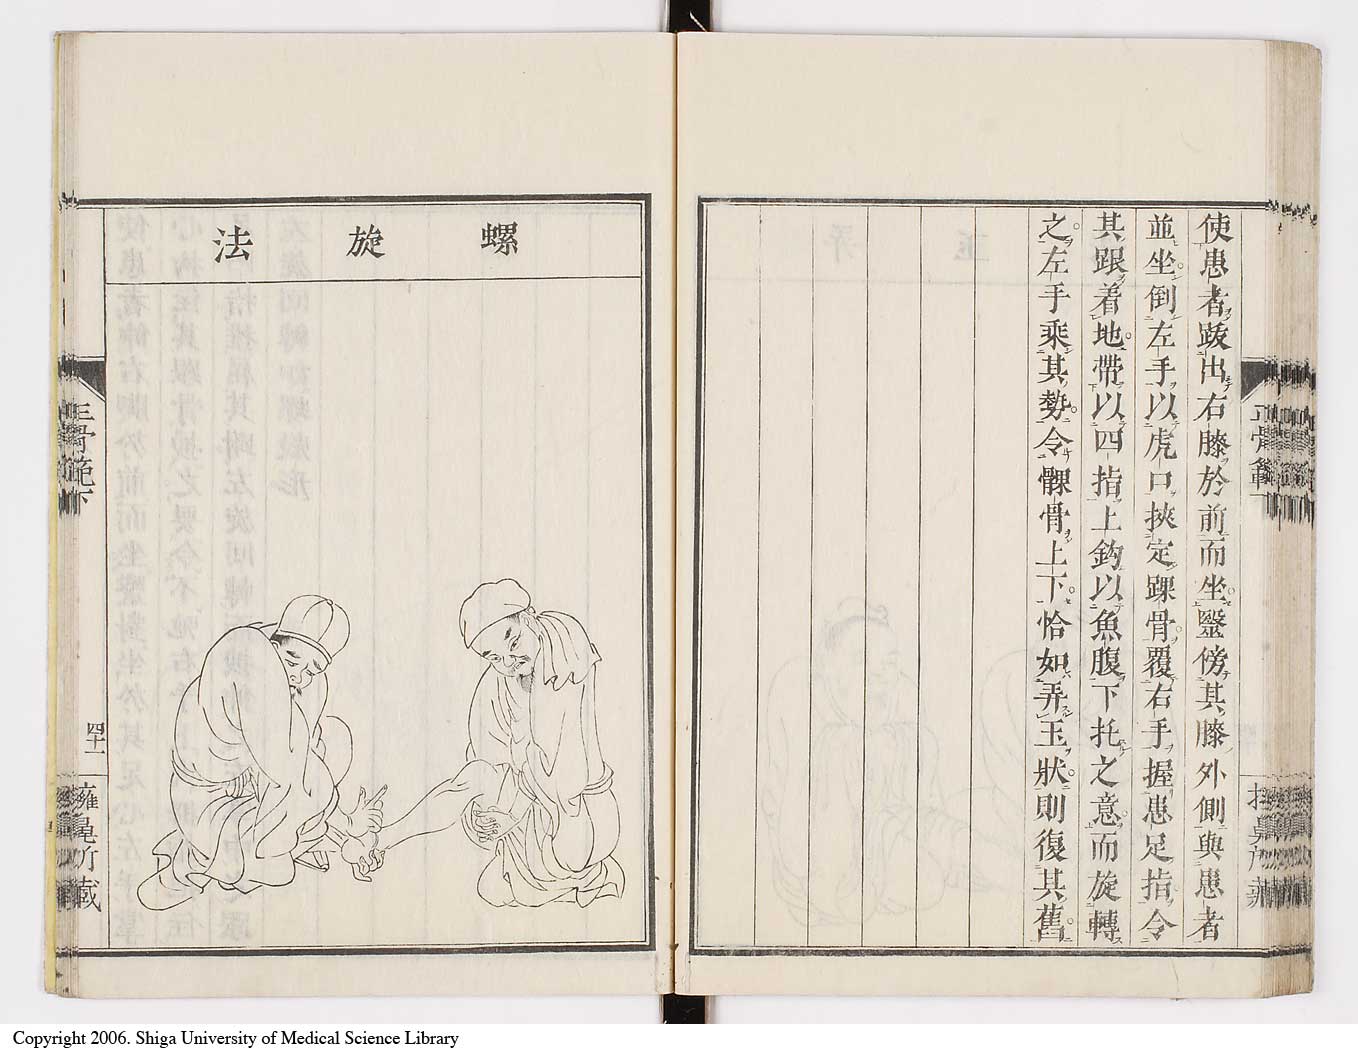 使患者跋出右膝於前而坐毉傍其膝外側與患者
並坐倒左手以虎口挾定踝骨覆右手握患足指令
其跟着地帶以四指上鈎以魚腹下托之意而旋轉
之左手乘其勢令髁骨上下恰如弄玉狀則復其舊
螺旋法
正骨範下
四十一
Copyright 2006. Shiga University of Medical Science Library